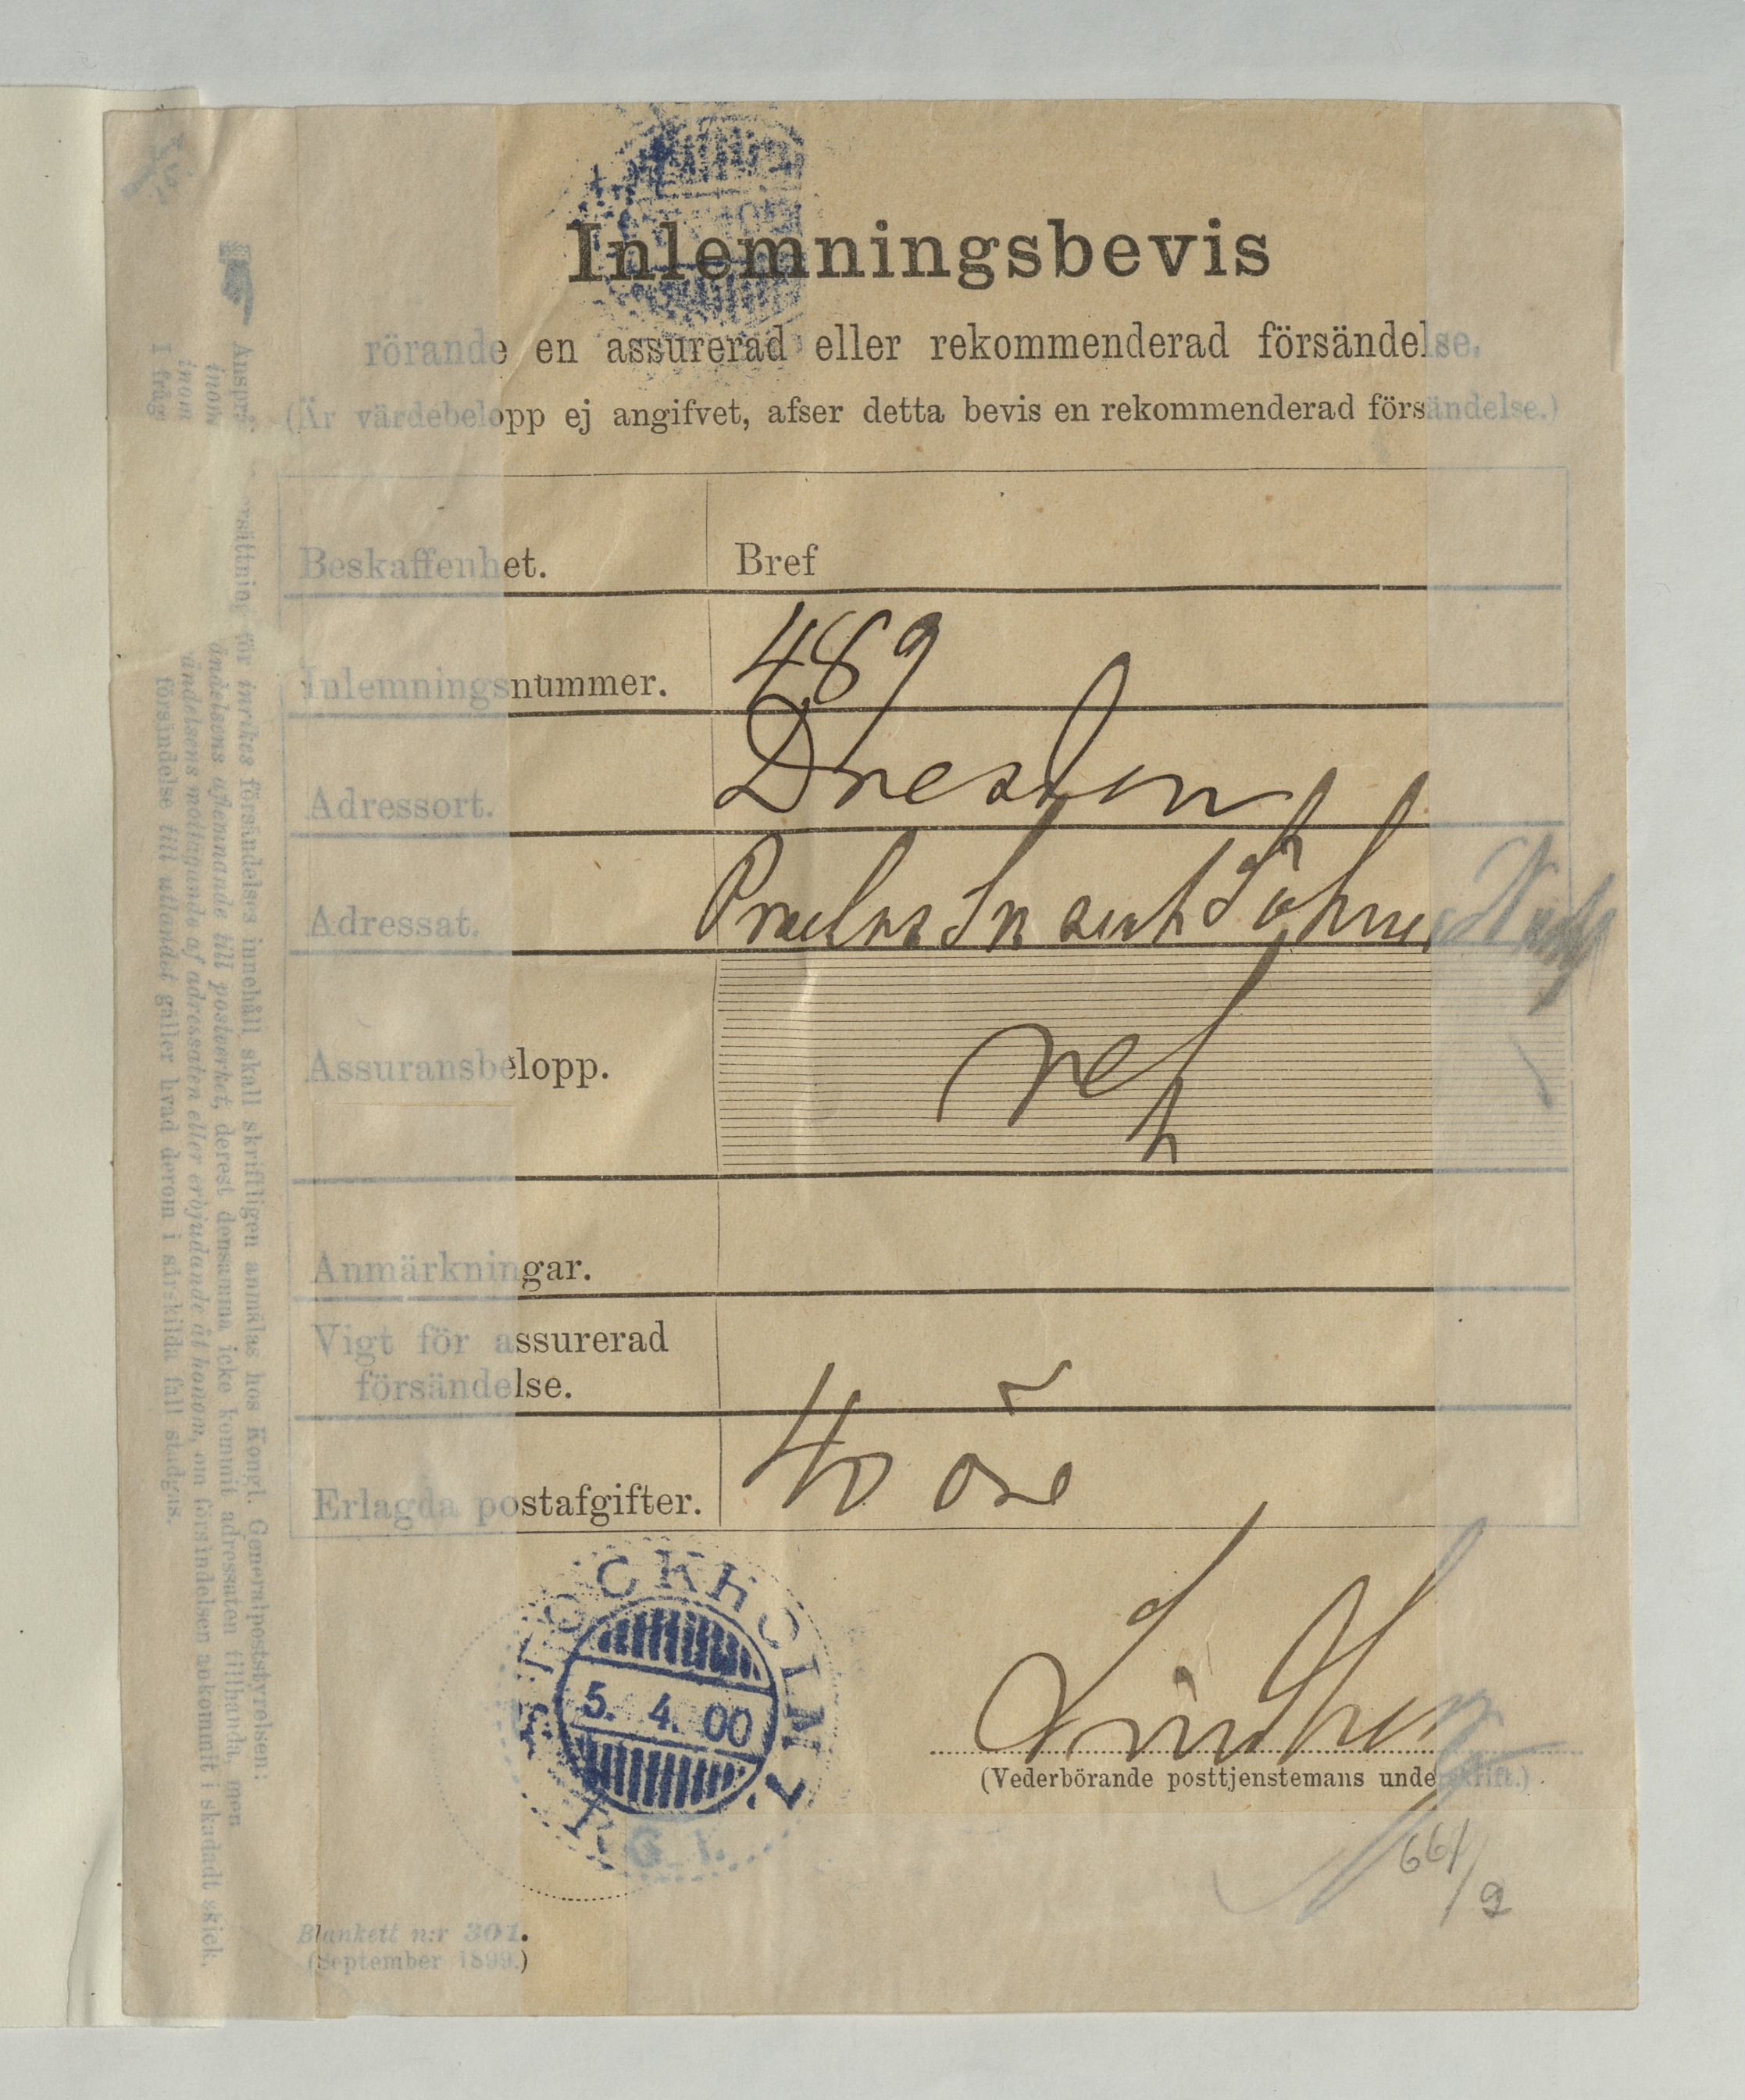 Inlemningsbevis
rörande en assurerad eller rekommenderad försändelse.
(Är värdebelopp ej angifvet, afser detta bevis en rekommenderad försändelse.)
Beskaffenhet. Bref
Inlemningsnummer. 489
Adressort. Dresden
Adressat. Söhne
Assuransbelopp.
Anmärkningar.
Vigt för assurerad
försändelse.
Erlagda postafgifter. 40 öre
STOCKHOLM
5. 4. 00
(Vederbörande posttjenstemans underskrift.)
661/9
Blankett n:r 301.
(September 1899.)
ersättning för inrikes försändelses innehåll skall skriftligen anmälas hos Kongl. Generalpoststyrelsen:
inom försändelsens aflemnande till postverket, derest densamma icke kommit adressaten tillhanda, men
inom försändelsens mottagande af adressaten eller erbjudande åt honom, om försändelsen ankommit i skadadt skick.
I fråg försändelse till utlandet gäller hvad derom i särskilda fall stadgas.